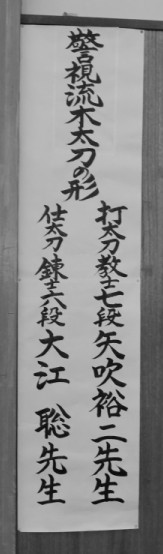 警視流木太刀の形
打太刀教士七段矢吹裕二先生
仕太刀錬士六段大江聡先生